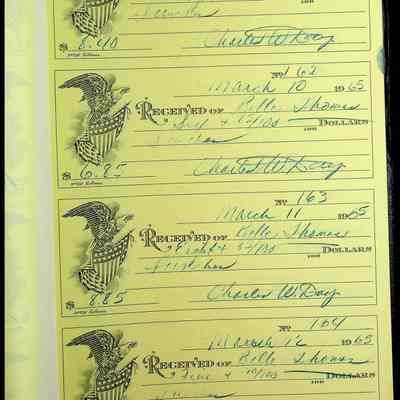 $ 8.40 Charles W. Day
No 162
March 10 1965
RECEIVED OF Belle Thomas
Six & 85/100 DOLLARS
$ 6.85 Charles W. Day
No 163
March 11 1965
RECEIVED OF Belle Thomas
Eight & 85/100 DOLLARS
$ 8.85 Charles W. Day
No 164
March 12 1965
RECEIVED OF Belle Thomas
DOLLARS